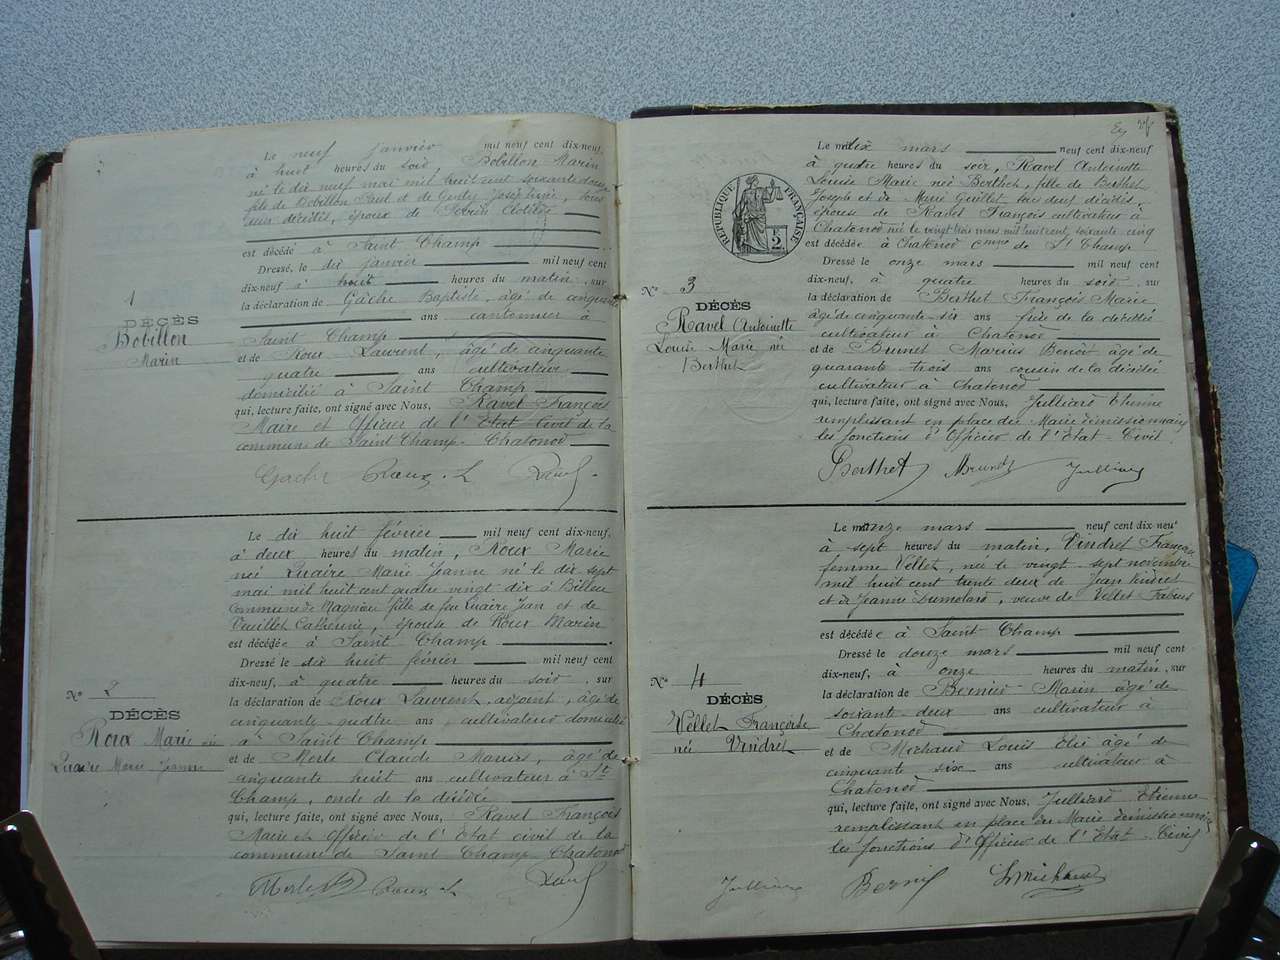 Le neuf janvier mil neuf cent dix-neuf,
à huit heures du soir, Bobillon Marin
né le dix neuf mai mil huit cent soixante douze
fils de Bobillon Paul et de Josephine, tous
deux décédés, époux de
est décédé à Saint Champ
Dressé, le dix janvier mil neuf cent
dix-neuf à huit heures du matin, sur
la déclaration de Gâche Baptiste, âgé de cinquante
ans cantonnier à
Saint Champ
et de Roux Laurent, âgé de cinquante
quatre ans cultivateur
domicilié à Saint Champ
qui, lecture faite, ont signé avec Nous, Ravel François
Maire et Officier de l'Etat civil de la
commune de Saint Champ-Chatonod
Gache Roux. L Ravel
1
DÉCÈS
Bobillon
Marin
Le dix huit février mil neuf cent dix-neuf,
à deux heures du matin, Roux Marie
née Luaire Marie Jeanne né le dix sept
mai mil huit cent quatre vingt dix à Billieu
Commune de Magnieu fille de feu Luaire Jean et de
Vuillet Catherine, épouse de Roux Marin
est décédée à Saint Champ
Dressé le dix huit février mil neuf cent
dix-neuf, à quatre heures du soir, sur
la déclaration de Roux Laurent, adjoint, âgé de
cinquante-quatre ans, cultivateur domicilié
à Saint Champ
et de Merle Claude Marius, âgé de
cinquante huit ans cultivateur à St
Champ, oncle de la décédée
qui, lecture faite, ont signé avec Nous, Ravel François
Maire et Officier de l'Etat civil de la
commune de Saint Champ Chatonod
Merle Roux. L Ravel
No 2
DÉCÈS
Roux Marie née
Luaire Marie Jeanne
24
RÉPUBLIQUE FRANÇAISE
2 F
Le dix mars neuf cent dix-neuf
à quatre heures du soir, Ravel Antoinette
Louise Marie née Berthet, fille de Berthet
Joseph et de Marie Guillet tous deux décédés,
épouse de Ravel François cultivateur à
Chatonod née le vingt trois mars mil huit cent soixante cinq
est décédée à Chatonod cmne de St Champ
Dressé le onze mars mil neuf cent
dix-neuf, à quatre heures du soir, sur
la déclaration de Berthet François Marie
âgé de cinquante-six ans frère de la décédée
cultivateur à Chatonod
et de Brunet Marius Benoît âgé de
quarante trois ans cousin de la décédée
cultivateur à Chatonod
qui, lecture faite, ont signé avec Nous, Julliard Etienne
remplissant en place du Maire démissionnaire
les fonctions d'Officier de l'Etat-Civil
Berthet Brunet Julliard
No 3
DÉCÈS
Ravel Antoinette
Louise Marie née
Berthet
Le onze mars neuf cent dix-neuf
à sept heures du matin, Vindret Françoise
femme Vellet, née le vingt-sept novembre
mil huit cent trente deux de Jean Vindret
et de Jeanne Dumolard, veuve de Vellet Fabien
est décédée à Saint Champ
Dressé le douze mars mil neuf cent
dix-neuf, à onze heures du matin, sur
la déclaration de Bernier Marin âgé de
soixante-deux ans cultivateur à
Chatonod
et de Michaud Louis Elie âgé de
cinquante six ans cultivateur à
Chatonod
qui, lecture faite, ont signé avec Nous, Julliard Etienne
remplissant en place du Maire démissionnaire
les fonctions d'Officier de l'Etat-Civil
Julliard Bernier L Michaud
No 4
DÉCÈS
Vellet Françoise
née Vindret